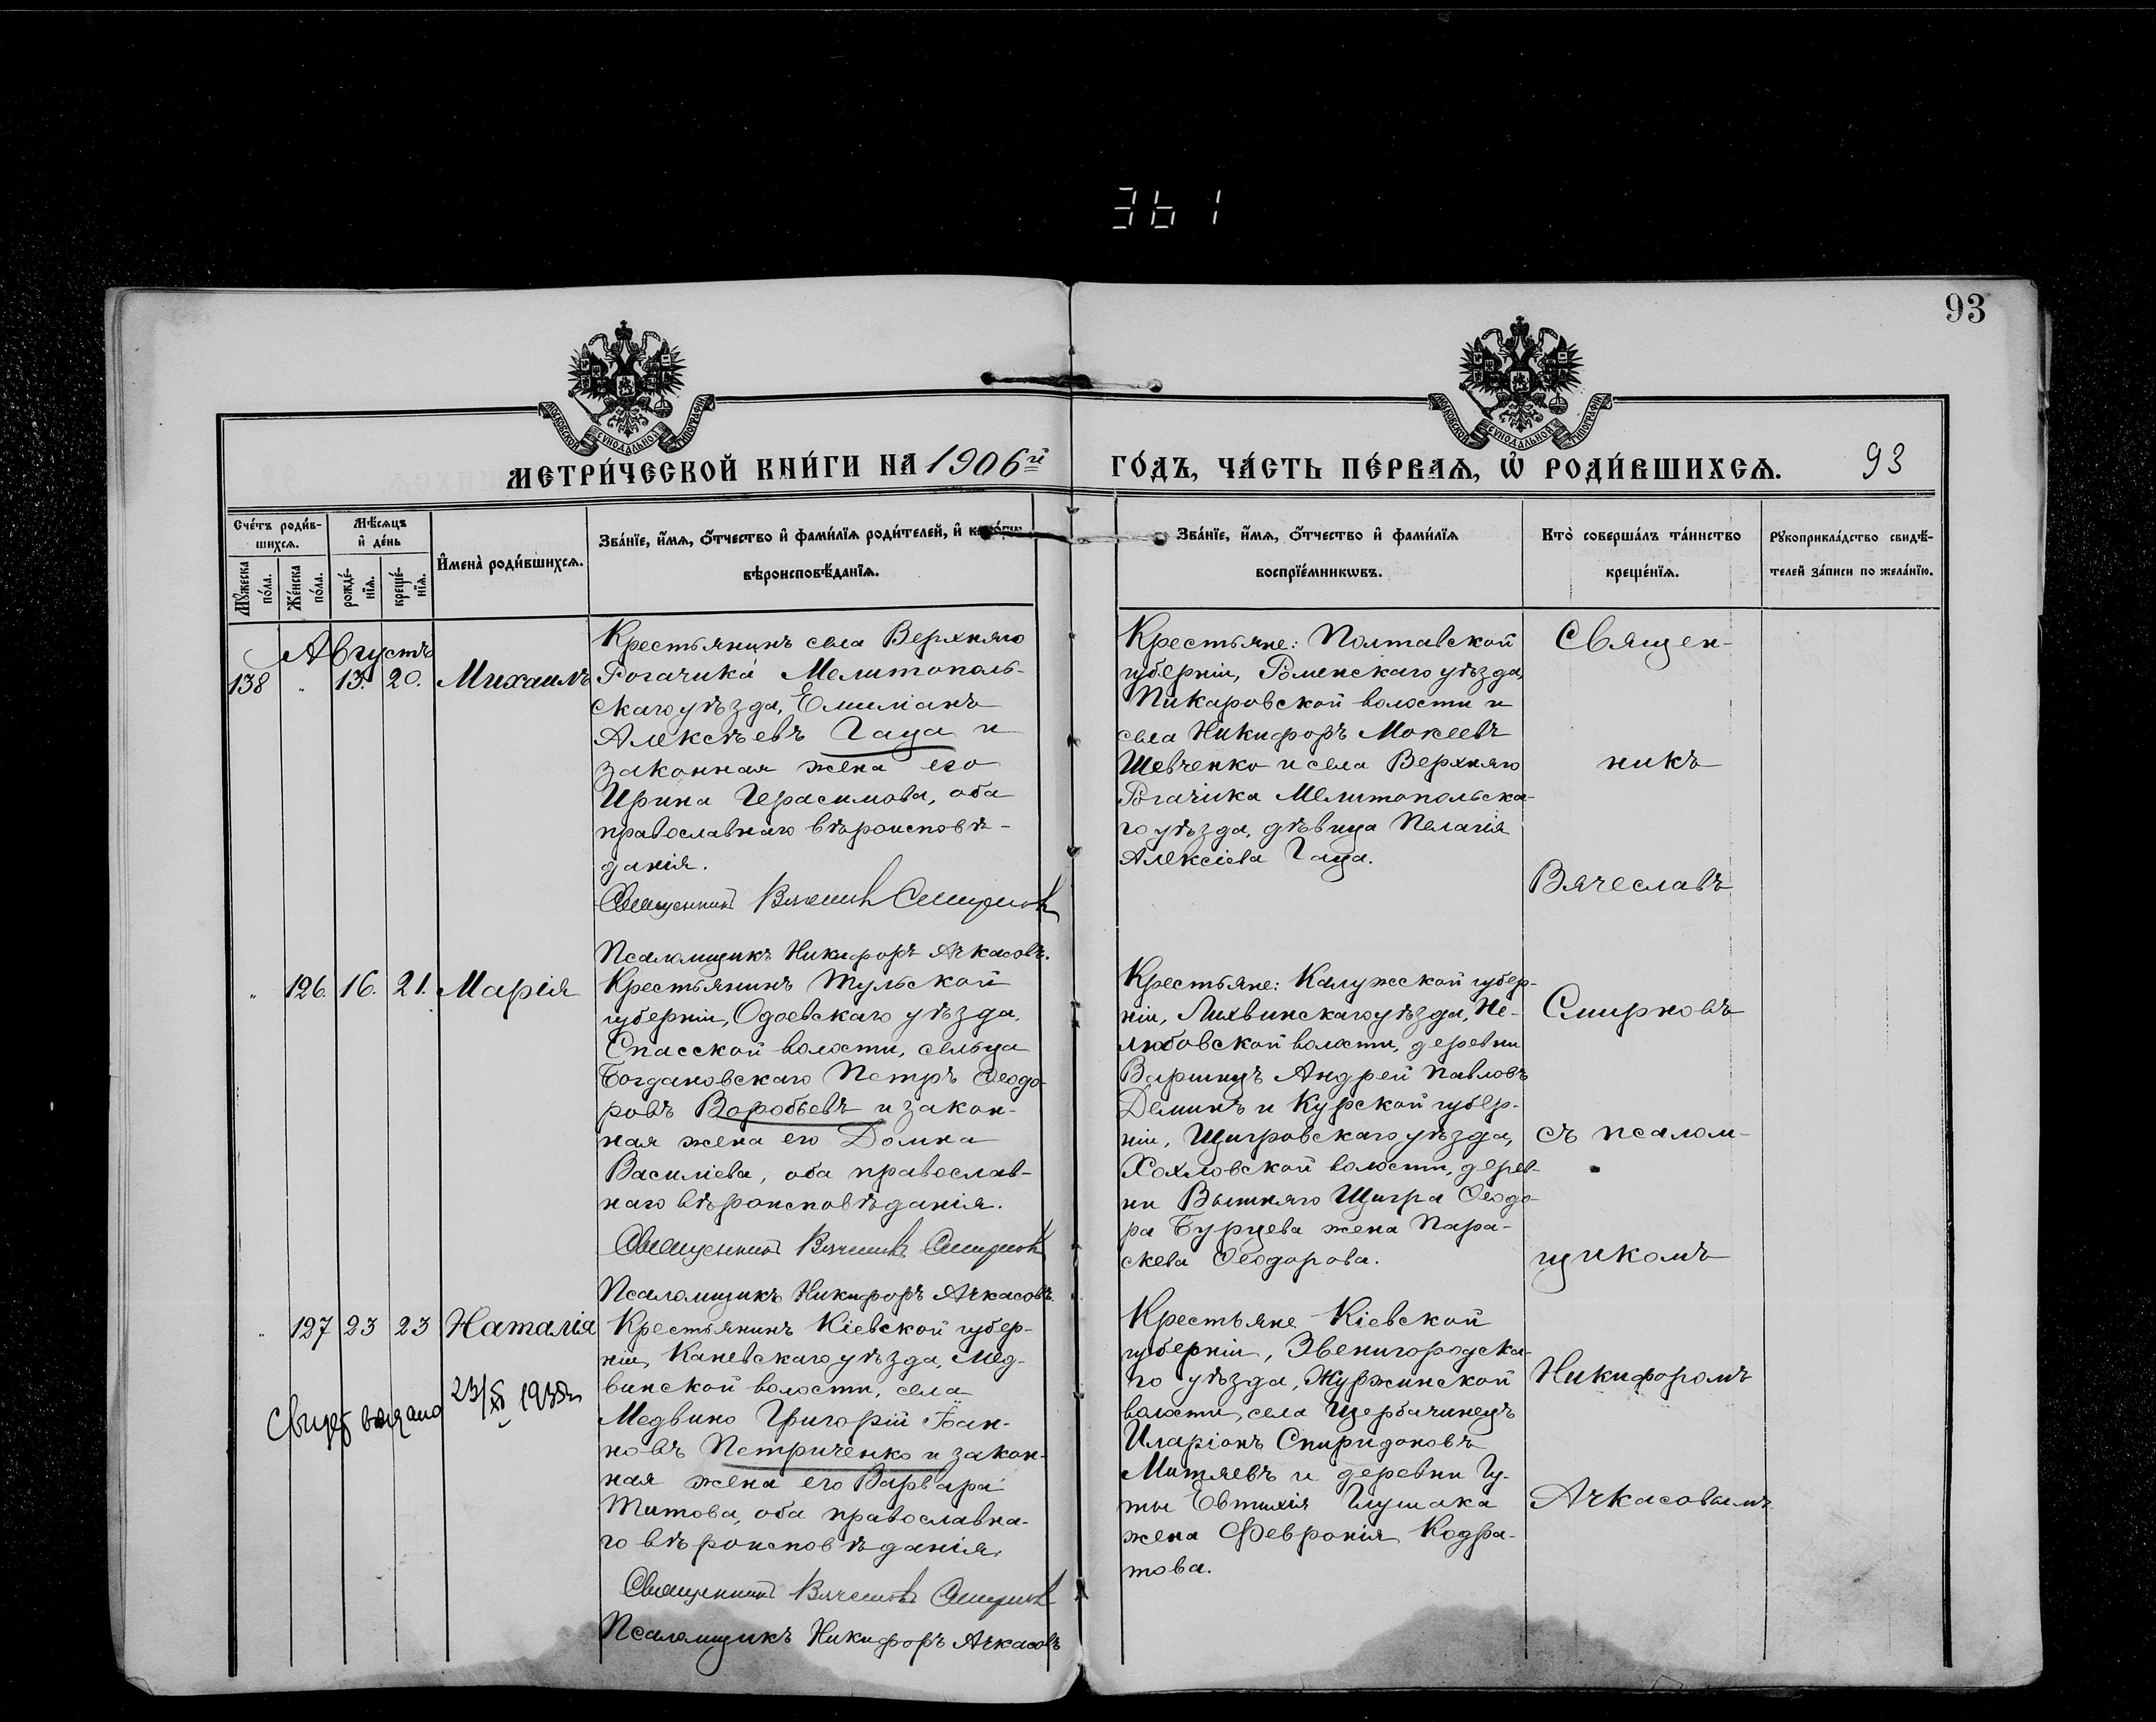 361
93
МОСКОВСКОЙ СѴНОДАЛЬНОЙ ТИПОГРАФІИ
МОСКОВСКОЙ СѴНОДАЛЬНОЙ ТИПОГРАФІИ
МЕТРИ́ЧЕСКОЙ КНИ́ГИ НА 1906й
ГО́ДЪ, ЧА́СТЬ ПЕ́РВАѦ, Ѡ҆ РОДИ́ВШИХСѦ.
93
Сче́тъ роди́в-
шихсѧ.
Мꙋ́жеска
по́ла.
Же́нска
по́ла.
Мѣ́сѧцъ
и҆ де́нь
рожде́-
нїѧ.
креще́-
нїѧ.
И҆мена̀ роди́вшихсѧ.
Зва́нїе, и҆́мѧ, ѻ҆́тчество и҆ фами́лїѧ роди́телей, и҆
вѣроисповѣ́данїѧ.
Зва́нїе, и҆́мѧ, ѻ҆́тчество и҆ фами́лїѧ
воспрїе́мникѡвъ.
Кто̀ соверша́лъ та́инство
креще́нїѧ.
Рꙋкоприкла́дство свидѣ́-
телей за́писи по жела́нїю.
Августъ
138 " 13. 20. Михаилъ
Крестьянинъ села Верхняго
Рогачика Мелитополь-
скаго уѣзда, Емиліанъ
Алексѣевъ Гаца и
законная жена его
Ирина Герасимова, оба
православнаго вѣроисповѣ-
данія.
Священникъ Вячеславъ Смирновъ
Псаломщикъ Никифоръ Ачкасовъ.
Крестьяне: Полтавской
губерніи, Роменскаго уѣзда,
Пикаровской волости и
села Никифоръ Мокеевъ
Шевченко и села Верхняго
Рогачика Мелитопольска-
го уѣзда, дѣвица Пелагія
Алексіева Гаца.
Священ-
никъ
Вячеславъ
" 126. 16. 21. Марія
Крестьянинъ Тульской
губерніи, Одоевскаго уѣзда,
Спасской волости, сельца
Богдановскаго Петръ Ѳеодо-
ровъ Воробьевъ и закон-
ная жена его Домна
Василіева, оба православ-
наго вѣроисповѣданія.
Священникъ Вячеславъ Смирновъ
Псаломщикъ Никифоръ Ачкасовъ.
Крестьяне: Калужской губер-
ніи, Лихвинскаго уѣзда, Не-
любовской волости, деревни
Андрей Павловъ
Деминъ и Курской губер-
ніи, Щигровскаго уѣзда,
Хохловской волости, дерев-
ни Вышняго Щигра Ѳеодо-
ра Бурцева жена Пара-
скева Ѳеодорова.
Смирновъ
съ псалом-
щикомъ
" 127 23 23 Наталія
Свидет выдано 23/XI 193
Крестьянинъ Кіевской губер-
ніи, Каневскаго уѣзда, Мед-
винской волости, села
Медвино Григорій Іоан-
новъ Петриченко и закон-
ная жена его Варвара
Титова, оба православна-
го вѣроисповѣданія.
Священникъ Вячеславъ Смирновъ
Псаломщикъ Никифоръ Ачкасовъ
Крестьяне Кіевской
губерніи, Звенигородска-
го уѣзда, Журжинской
волости, села Щербачинецъ
Иларіонъ Спиридоновъ
Митяевъ и деревни Гу-
ты Евтихія Глушака
жена Февронія Кодра-
това.
Никифоромъ
Ачкасовымъ.